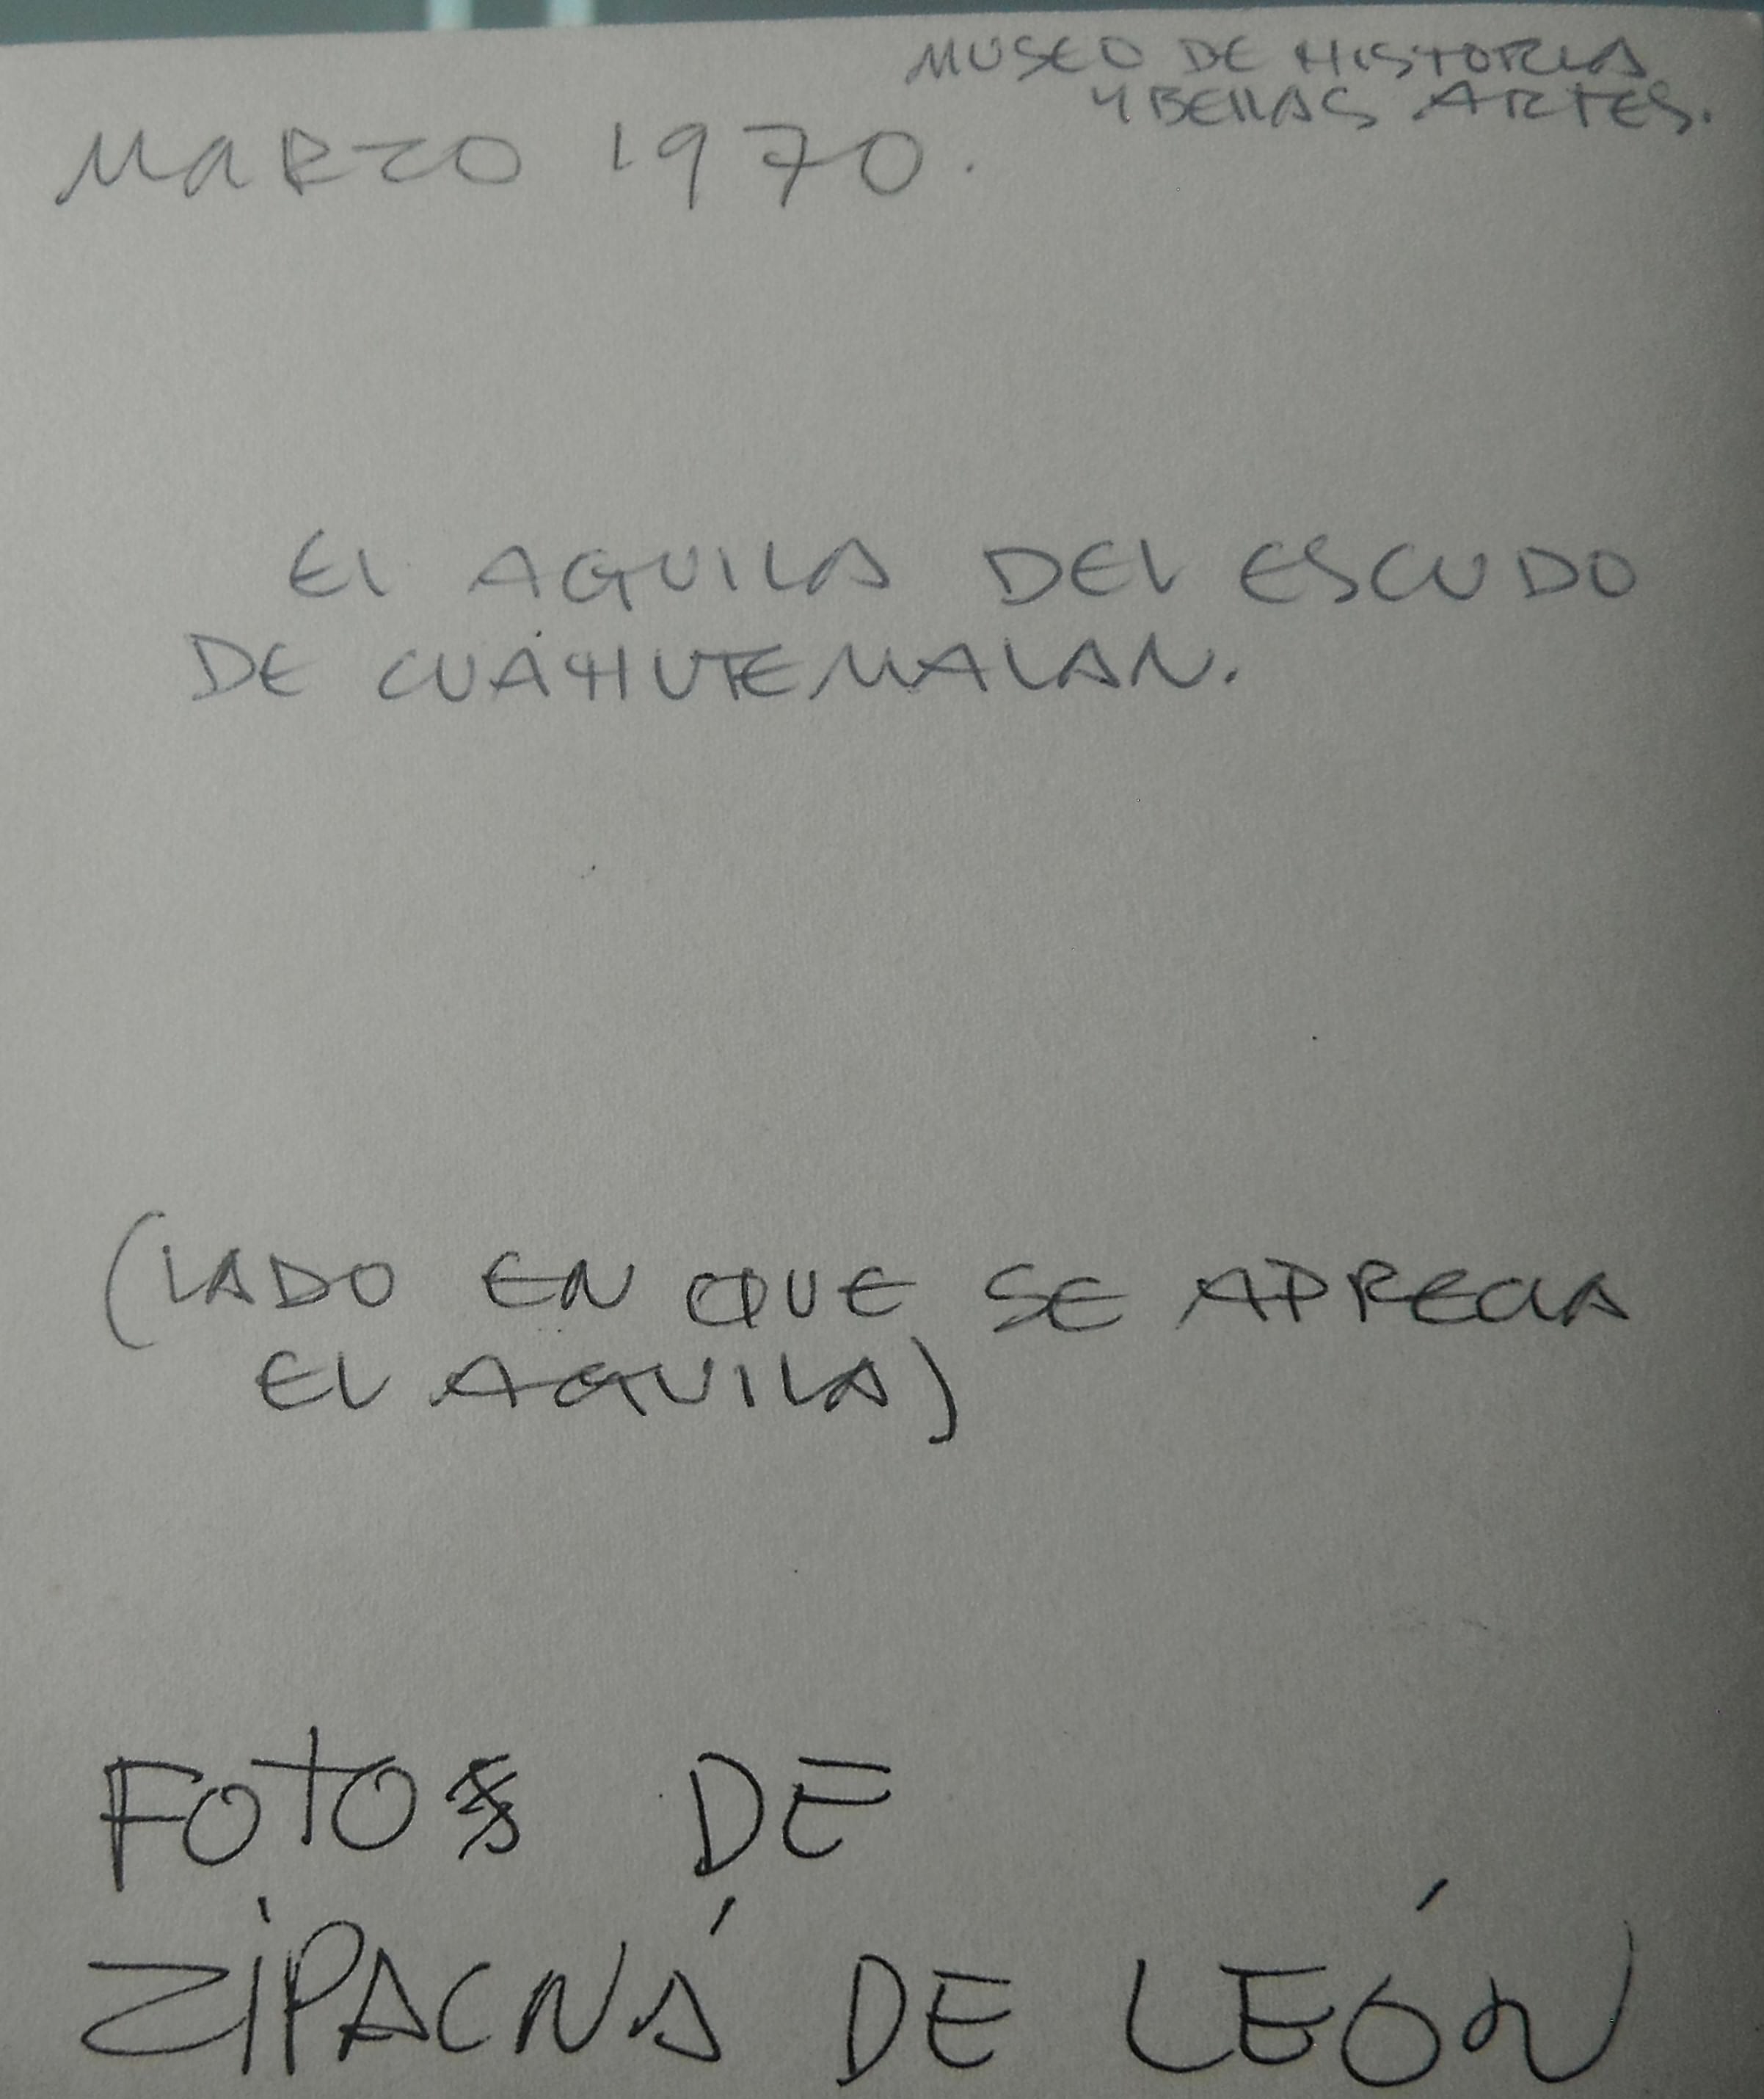 MUSEO DE HISTORIA
Y BELLAS ARTES.
MARZO 1970.
EL AGUILA DEL ESCUDO
DE CUAHUTEMALAN.
(LADO EN QUE SE APRECIA
EL AGUILA)
FOTOS DE
ZIPACNÁ DE LEÓN